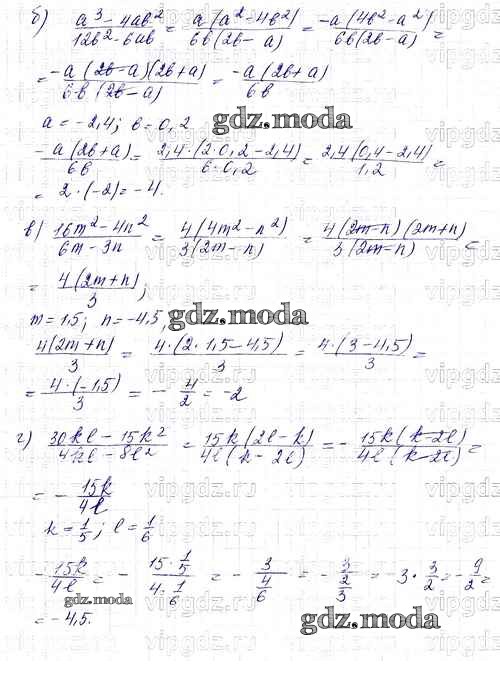 б) (a³ - 4ab²)/(12b² - 6ab) = (a(a² - 4b²))/(6b(2b - a)) = (-a(4b² - a²))/(6b(2b - a)) =
= (-a(2b - a)(2b + a))/(6b(2b - a)) = (-a(2b + a))/(6b)
a = -2,4; b = 0,2
gdz.moda
(-a(2b + a))/(6b) = (2,4·(2·0,2 - 2,4))/(6·0,2) = (2,4(0,4 - 2,4))/(1,2) =
= 2·(-2) = -4.
в) (16m² - 4n²)/(6m - 3n) = (4(4m² - n²))/(3(2m - n)) = (4(2m - n)(2m + n))/(3(2m - n)) =
= (4(2m + n))/3;
m = 1,5; n = -4,5,
gdz.moda
(4(2m + n))/3 = (4·(2·1,5 - 4,5))/3 = (4·(3 - 4,5))/3 =
= (4·(-1,5))/3 = -4/2 = -2
г) (30kl - 15k²)/(4kl - 8l²) = (15k(2l - k))/(4l(k - 2l)) = -(15k(k - 2l))/(4l(k - 2l)) =
= -(15k)/(4l)
k = 1/5; l = 1/6
-(15k)/(4l) = -(15·1/5)/(4·1/6) = -3/(4/6) = -3/(2/3) = -3·3/2 = -9/2 =
gdz.moda
= -4,5.
gdz.moda